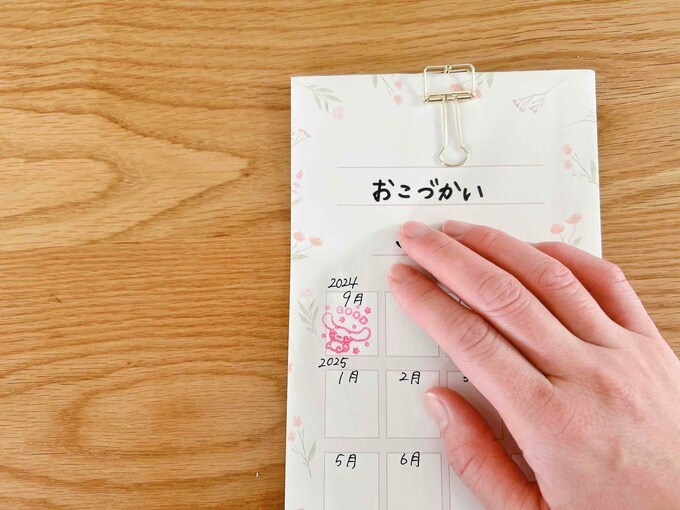 おこづかい
2024
9月
GOOD
2025
1月 2月
5月 6月